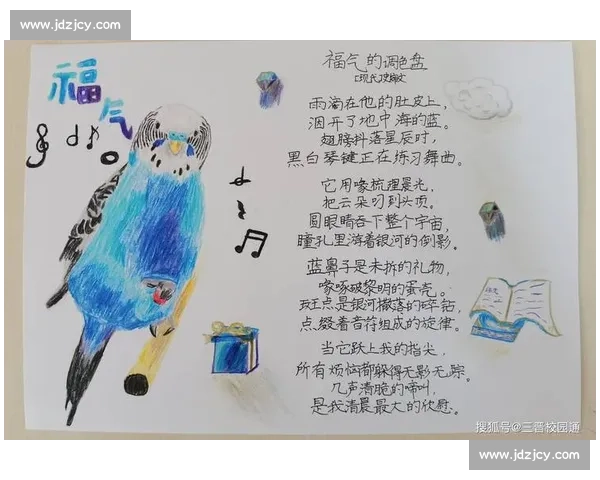 www.jdzjcy.com
福气
福气的调色盘
雨滴在他的肚皮上，
洇开了地中海的蓝。
翅膀抖落星辰时，
黑白琴键正在练习舞曲。
它用喙梳理晨光，
把云朵叼到头顶。
圆眼睛吞下整个宇宙，
瞳孔里游着银河的倒影。
蓝鼻子是未拆的礼物，
喙啄破黎明的蛋壳。
斑点是银河撒落的碎钻，
点缀着音符组成的旋律。
当它跃上我的指尖，
所有烦恼都躲得无影无踪。
几声清脆的啼叫，
是我清晨最大的欣慰。
搜狐号@三晋校园通
www.jdzjcy.com